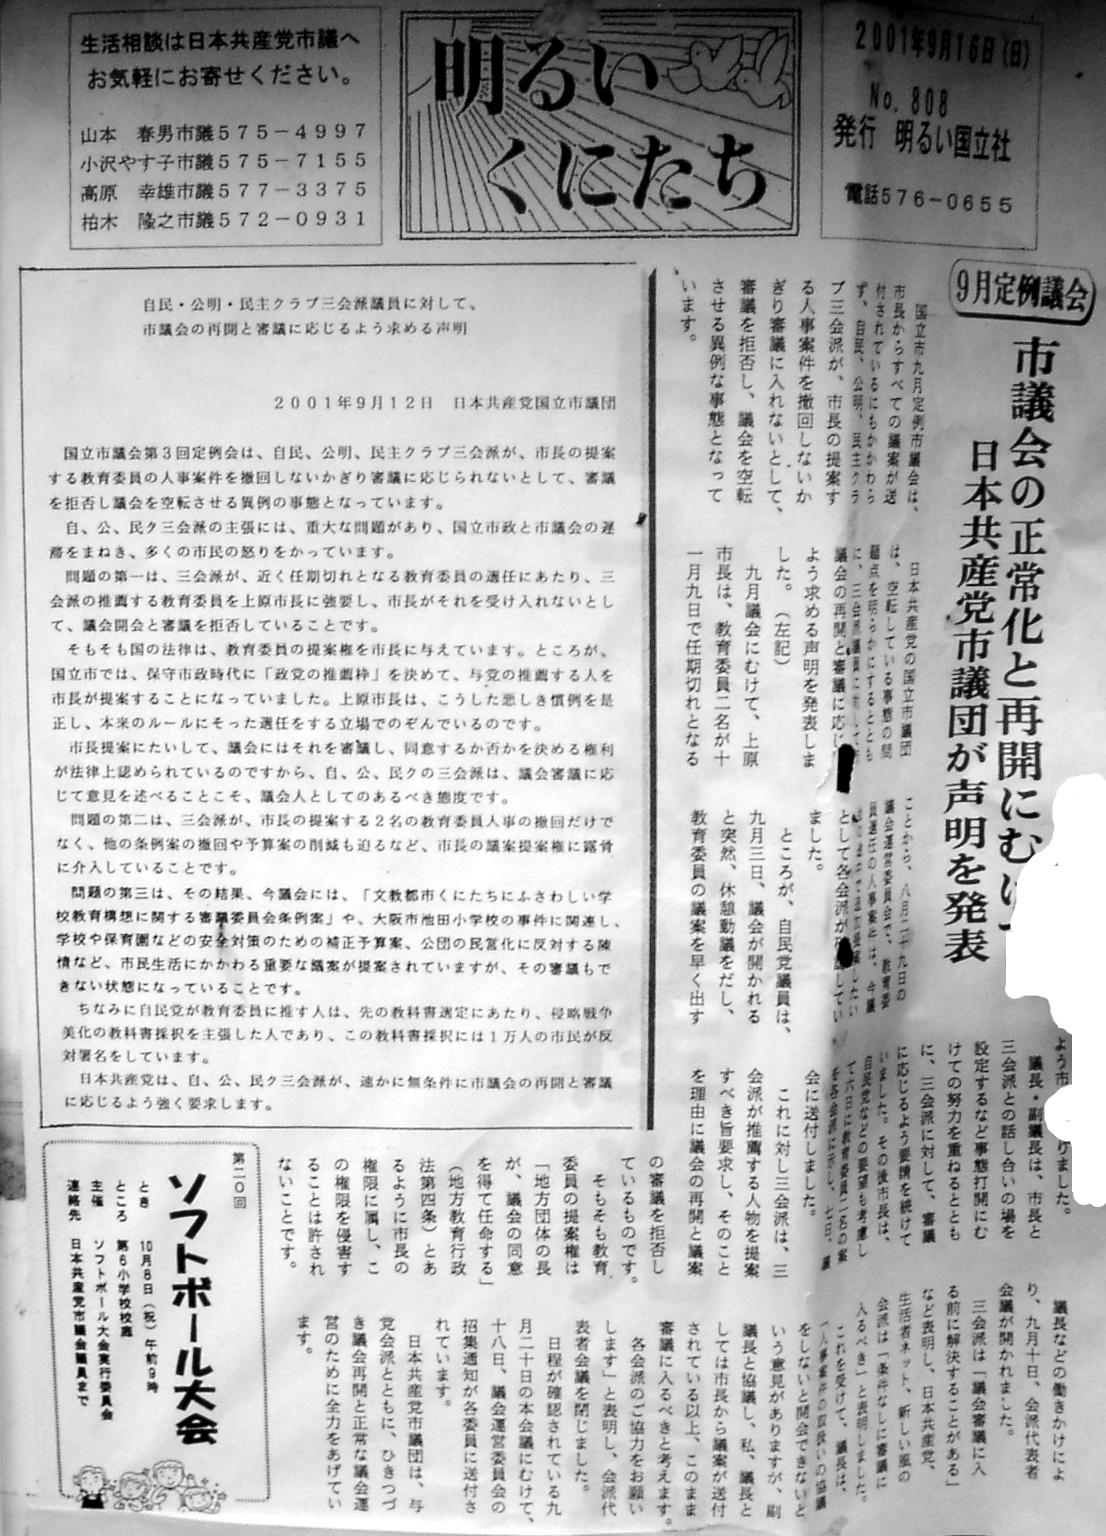 生活相談は日本共産党市議へ
お気軽にお寄せください。
山本　春男市議５７５－４９９７
小沢やす子市議５７５－７１５５
高原　幸雄市議５７７－３３７５
柏木　隆之市議５７２－０９３１
明るい
くにたち
２００１年９月１６日（日）
No. ８０８
発行　明るい国立社
電話５７６－０６５５
９月定例議会
市議会の正常化と再開にむけ
日本共産党市議団が声明を発表
国立市九月定例市議会は、
市長からすべての議案が送
付されているにもかかわら
ず、自民、公明、民主クラ
ブ三会派が、市長の提案す
る人事案件を撤回しないか
ぎり審議に入れないとして、
審議を拒否し、議会を空転
させる異例な事態となって
います。
日本共産党の国立市議団
は、空転している事態の問
題点を明らかにするととも
に、三会派議員に対して市
議会の再開と審議に応じ
よう求める声明を発表しま
した。（左記）
九月議会にむけて、上原
市長は、教育委員二名が十
一月九日で任期切れとなる
ことから、八月二十九日の
議会運営委員会で、教育委
員選任の人事案件は、今議
として各会派が
ました。
ところが、自民党議員は、
九月三日、議会が開かれる
と突然、休憩動議をだし、
教育委員の議案を早く出す
よう市
りました。
議長・副議長は、市長と
三会派との話し合いの場を
設定するなど事態打開にむ
けての努力を重ねるととも
に、三会派に対して、審議
に応じるよう要請を続けて
いました。その後市長は、
自民党などの要望も考慮し
て六日に教育委員二名の案
を各会派に示し、七日、議
会に送付しました。
これに対し三会派は、三
会派が推薦する人物を提案
すべき旨要求し、そのこと
を理由に議会の再開と議案
の審議を拒否し
ているものです。
そもそも教育
委員の提案権は
「地方団体の長
が、議会の同意
を得て任命する」
（地方教育行政
法第四条）とあ
るように市長の
権限に属し、こ
の権限を侵害す
ることは許され
ないことです。
議長などの働きかけによ
り、九月十日、会派代表者
会議が開かれました。
三会派は「議会審議に入
る前に解決することがある」
など表明し、日本共産党、
生活者ネット、新しい風の
会派は「条件なしに審議に
入るべき」と表明しました。
これを受けて、議長は、
「人事案件の取扱いの協議
をしないと開会できないと
いう意見がありますが、副
議長と協議し、私、議長と
しては市長から議案が送付
されている以上、このまま
審議に入るべきと考えます。
各会派のご協力をお願い
します」と表明し、会派代
表者会議を閉じました。
日程が確認されている九
月二十日の本会議にむけて、
十八日、議会運営委員会の
招集通知が各委員に送付さ
れています。
日本共産党市議団は、与
党会派とともに、ひきつづ
き議会再開と正常な議会運
営のために全力をあげてい
ます。
自民・公明・民主クラブ三会派議員に対して、
市議会の再開と審議に応じるよう求める声明
２００１年９月１２日　日本共産党国立市議団
国立市議会第３回定例会は、自民、公明、民主クラブ三会派が、市長の提案
する教育委員の人事案件を撤回しないかぎり審議に応じられないとして、審議
を拒否し議会を空転させる異例の事態となっています。
自、公、民ク三会派の主張には、重大な問題があり、国立市政と市議会の遅
滞をまねき、多くの市民の怒りをかっています。
問題の第一は、三会派が、近く任期切れとなる教育委員の選任にあたり、三
会派の推薦する教育委員を上原市長に強要し、市長がそれを受け入れないとし
て、議会開会と審議を拒否していることです。
そもそも国の法律は、教育委員の提案権を市長に与えています。ところが、
国立市では、保守市政時代に「政党の推薦枠」を決めて、与党の推薦する人を
市長が提案することになっていました。上原市長は、こうした悪しき慣例を是
正し、本来のルールにそった選任をする立場でのぞんでいるのです。
市長提案にたいして、議会にはそれを審議し、同意するか否かを決める権利
が法律上認められているのですから、自、公、民クの三会派は、議会審議に応
じて意見を述べることこそ、議会人としてのあるべき態度です。
問題の第二は、三会派が、市長の提案する２名の教育委員人事の撤回だけで
なく、他の条例案の撤回や予算案の削減も迫るなど、市長の議案提案権に露骨
に介入していることです。
問題の第三は、その結果、今議会には、「文教都市くにたちにふさわしい学
校教育構想に関する審議委員会条例案」や、大阪市池田小学校の事件に関連し、
学校や保育園などの安全対策のための補正予算案、公団の民営化に反対する陳
情など、市民生活にかかわる重要な議案が提案されていますが、その審議もで
きない状態になっていることです。
ちなみに自民党が教育委員に推す人は、先の教科書選定にあたり、侵略戦争
美化の教科書採択を主張した人であり、この教科書採択には１万人の市民が反
対署名をしています。
日本共産党は、自、公、民ク三会派が、速かに無条件に市議会の再開と審議
に応じるよう強く要求します。
第二〇回
ソフトボール大会
とき　10月８日（祝）午前９時
ところ　第６小学校校庭
主催　ソフトボール大会実行委員会
連絡先　日本共産党市議会議員まで